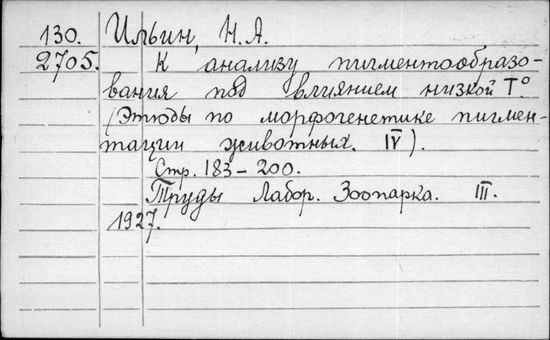 130. Ильин, Н.А.
2705. К анализу пигментообразо-
вания под влиянием низкой Т°
(Этюды по морфогенетике пигмен-
тации животных. IV).
Стр. 183-200.
Труды Лабор. Зоопарка. III.
1927.